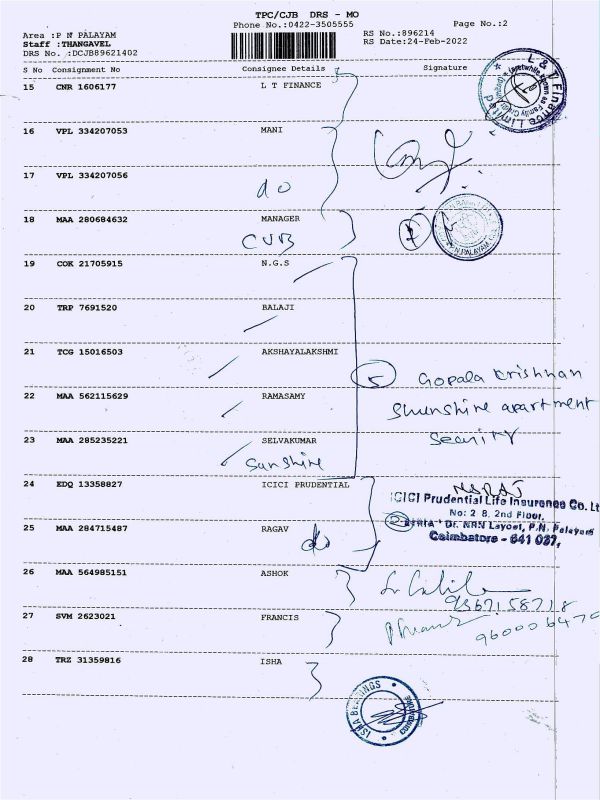 TPC/CJB DRS - MO
Phone No.:0422-3505555
Page No.:2
Area :P N PALAYAM
RS No.:896214
Staff :THANGAVEL
RS Date:24-Feb-2022
DRS No. :DCJB89621402
S No Consignment No Consignee Details Signature
15 CNR 1606177 L T FINANCE
L & T Finance Limited
16 VPL 334207053 MANI
17 VPL 334207056
do
18 MAA 280684632 MANAGER
CUB
P.N PALAYAM
19 COK 21705915 N.G.S
20 TRP 7691520 BALAJI
21 TCG 15016503 AKSHAYALAKSHMI
5 Gopala Krishnan
22 MAA 562115629 RAMASAMY
Shunshine apartment
23 MAA 285235221 SELVAKUMAR
Security
Sunshine
24 EDQ 13358827 ICICI PRUDENTIAL
ICICI Prudential Life Insurance Co. Lt
No: 2 8, 2nd Floor,
25 MAA 284715487 RAGAV
2
Dr. NRN Layout, P.N. Palayam
do
Coimbatore - 641 037,
26 MAA 564985151 ASHOK
9367158718
27 SVM 2623021 FRANCIS
960006470
28 TRZ 31359816 ISHA
ISHA BEARINGS
COIMBATORE